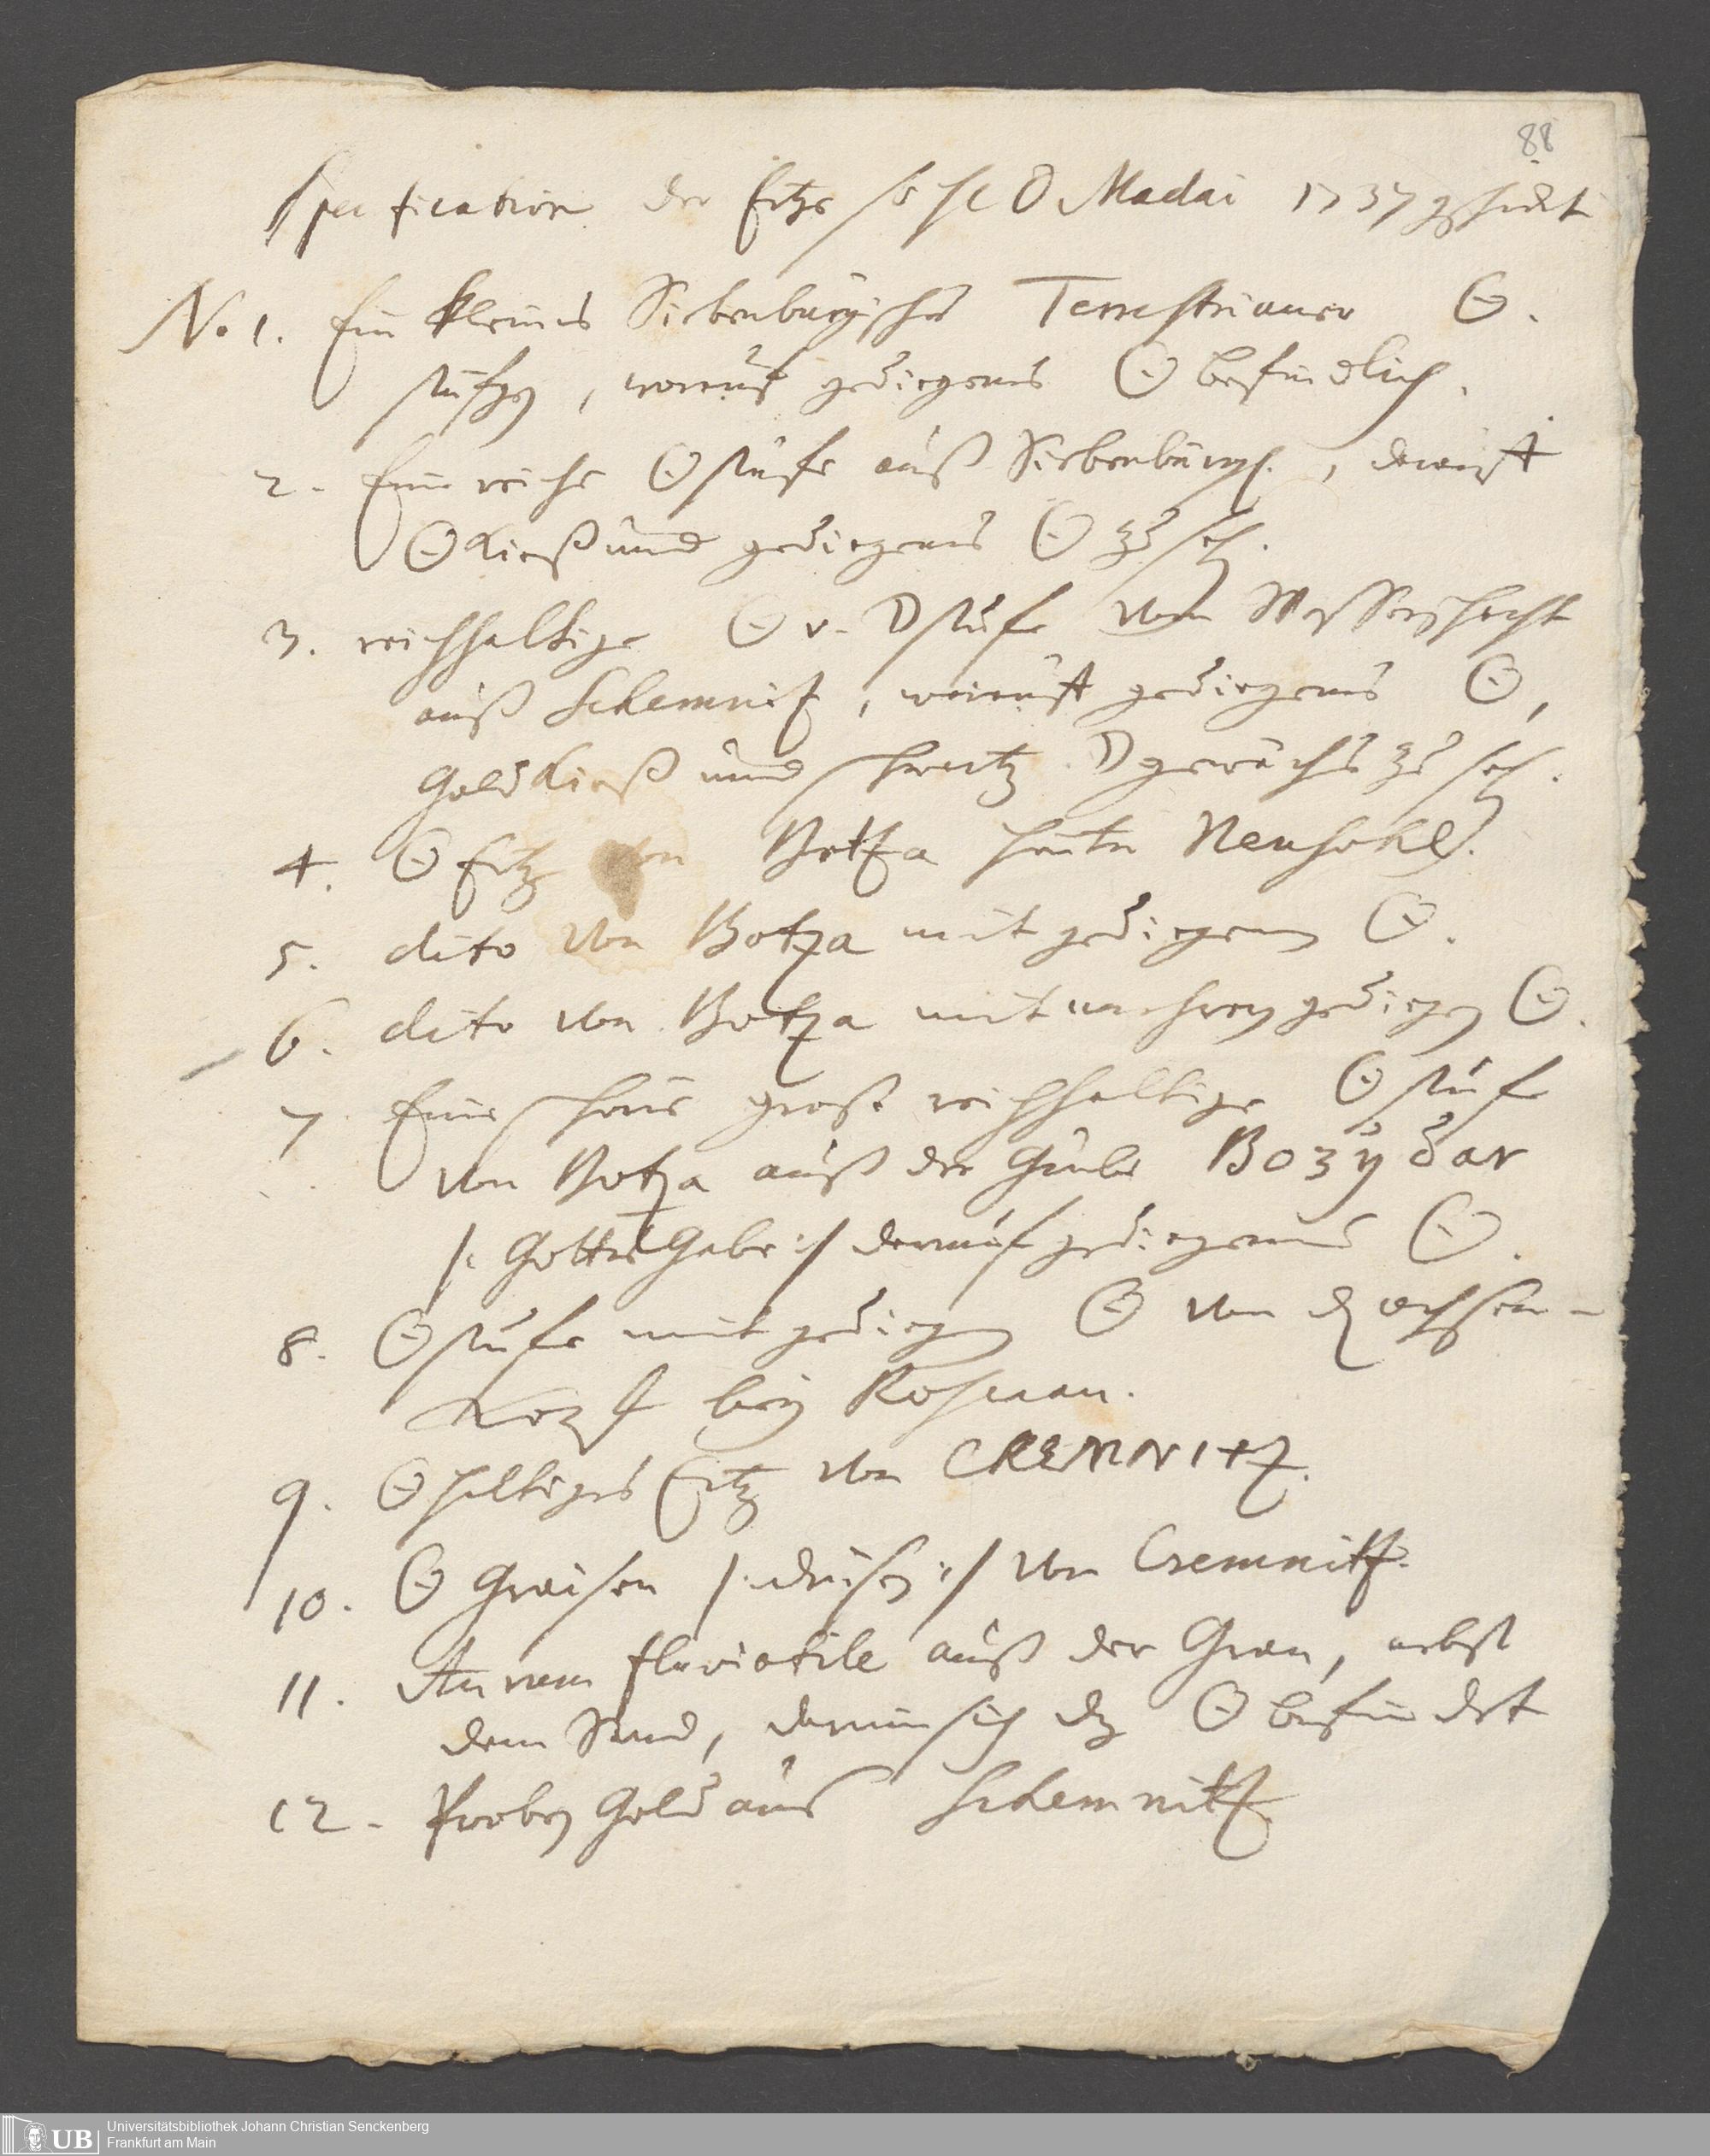 88
Specification der Ertze so H D Madai 1737 geschickt
No 1. Ein kleines Siebenbürgisches Terrestrianer ☉.
stufgen, worauf gediegenes ☉ befindlich.
2. Eine reiche ☉ stufe auß Siebenbürg., darauff
☉ kieß und gediegenes ☉ zu sehen.
3. reichhaltige ☉ u. ☽ stufe vom
auß Schemnitz, worauff gediegenes ☉,
Goldkieß und schwartz ☽ gewächs zu sehen.
4. ☉ Ertz von Botza hinter Neusohl.
5. dito von Botza mit gediegenen ☉.
6. dito von Botza mit mehreren gediegen ☉.
7. Eine schöne große reichhaltige ☉ stufe
von Botza auß der Grube Bozÿ dar
/: Gottes Gabe :/ darauf gediegenes ☉.
8. ☉ stufe mit gediegen ☉ von dem ochsen-
Kopf bey Rosenau.
9. ☉ haltiges Ertz von CREMNITZ.
10. ☉ Graisen /: drusen :/ von Cremnitz.
11. Aurum fluviatile auß der Gran, nebst
dem Sand, darinn sich das ☉ befindet
12. Proben Gold aus Schemnitz
UB
Universitätsbibliothek Johann Christian Senckenberg
Frankfurt am Main